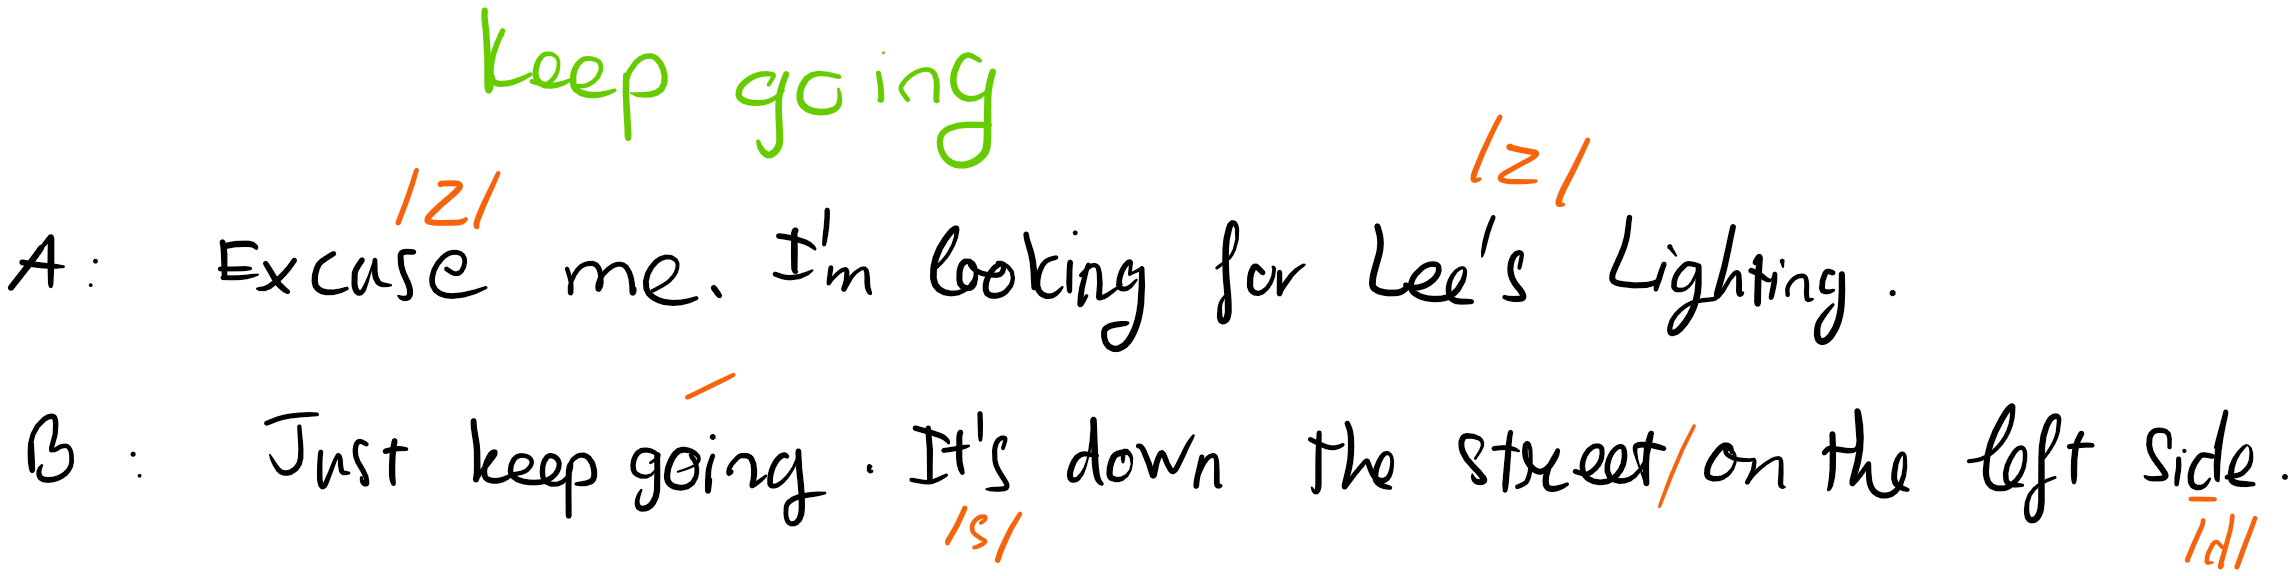 keep going
/z/ /z/
A: Excuse me. I'm looking for Lee's Lighting.
B: Just keep going. It's down the street/on the left side.
/s/ /d/